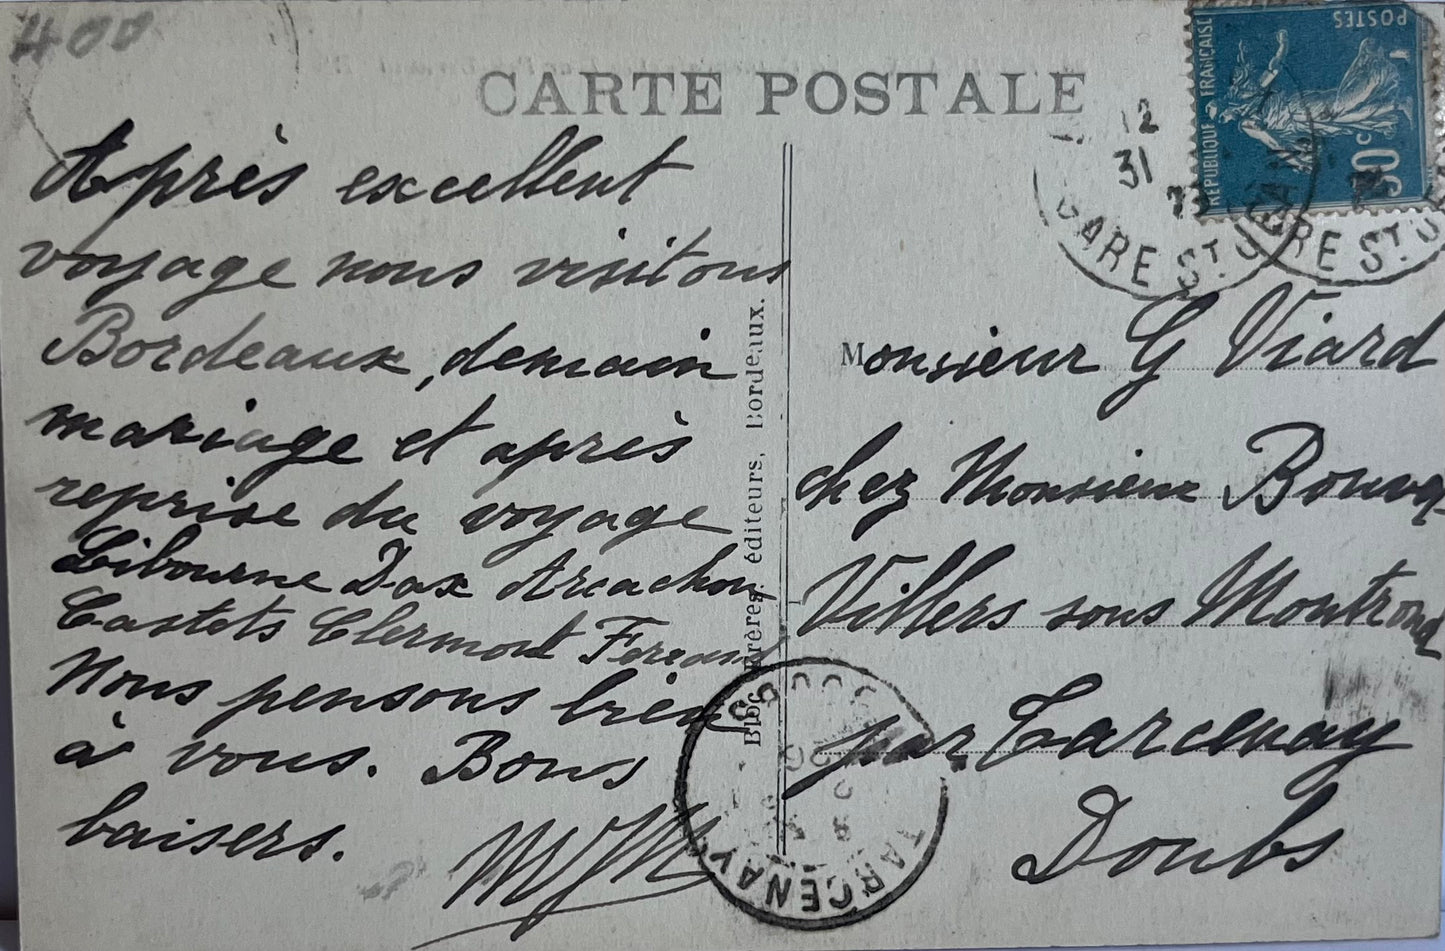 400
CARTE POSTALE
POSTES
RÉPUBLIQUE FRANÇAISE
30c
12
31
GARE ST J
GARE ST J
Après excellent
voyage nous visitons
Bordeaux, demain
mariage et après
reprise du voyage
Libourne Dax Arcachon
Castets Clermont Ferrand
Nous pensons bien
à vous. Bons
baisers.
frères, éditeurs, Bordeaux.
Monsieur G Viard
chez Monsieur
Villers sous Montrond
par Tarcenay
Doubs
TARCENAY